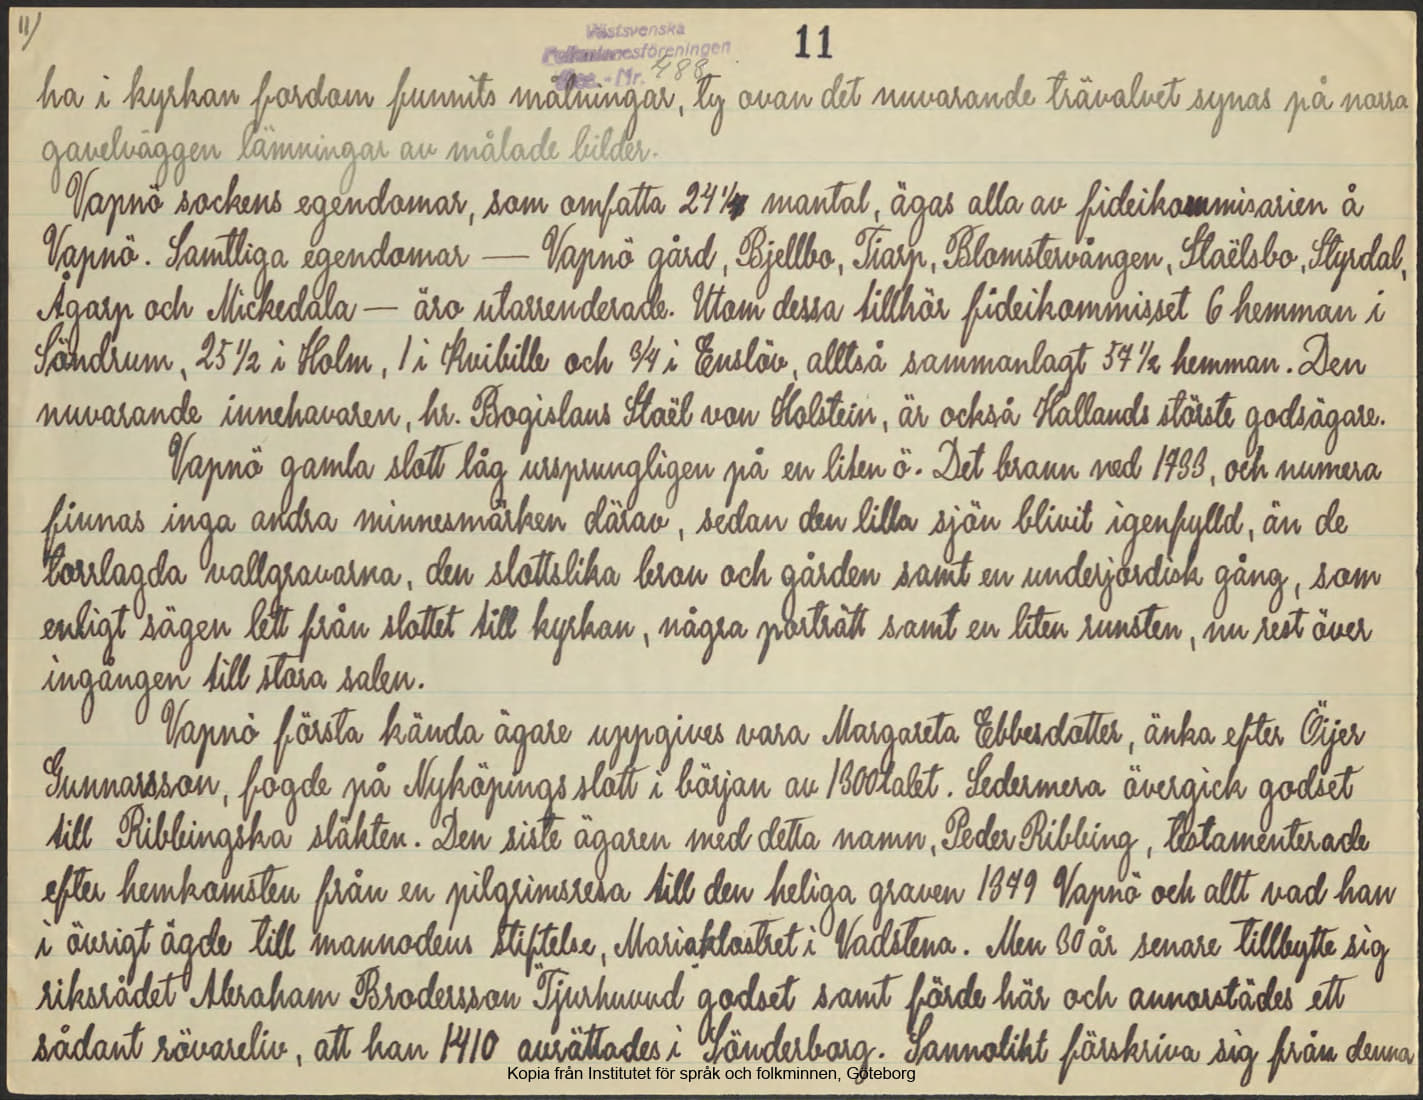 11)
Västsvenska
Folkminnesföreningen
Acc.-Nr. 488
11
ha i kyrkan fordom funnits målningar, ty ovan det nuvarande trävalvet synas på norra
gavelväggen lämningar av målade bilder.
Vapnö sockens egendomar, som omfatta 24 1/4 mantal, ägas alla av fideikommisarien å
Vapnö. Samtliga egendomar — Vapnö gård, Bjellbo, Tiarp, Blomstervången, Staëlsbo, Styrdal,
Ågarp och Mickedala — äro utarrenderade. Utom dessa tillhör fideikommisset 6 hemman i
Söndrum, 25 1/2 i Holm, 1 i Kvibille och 3/4 i Enslöv, alltså sammanlagt 57 1/2 hemman. Den
nuvarande innehavaren, hr. Bogislaus Staël von Holstein, är också Hallands störste godsägare.
Vapnö gamla slott låg ursprungligen på en liten ö. Det brann ned 1733, och numera
finnas inga andra minnesmärken därav, sedan den lilla sjön blivit igenfylld, än de
torrlagda vallgravarna, den slottslika bron och gården samt en underjordisk gång, som
enligt sägen lett från slottet till kyrkan, några porträtt samt en liten runsten, nu rest över
ingången till stora salen.
Vapnö första kända ägare uppgives vara Margareta Ebbesdotter, änka efter Öijer
Gunnarsson, fogde på Nyköpings slott i början av 1300talet. Sedermera övergick godset
till Ribbingska släkten. Den siste ägaren med detta namn, Peder Ribbing, testamenterade
efter hemkomsten från en pilgrimsresa till den heliga graven 1379 Vapnö och allt vad han
i övrigt ägde till mannodens stiftelse, Mariaklostret i Vadstena. Men 30 år senare tillbytte sig
riksrådet Abraham Brodersson "Tjurhuvud" godset samt förde här och annorstädes ett
sådant rövareliv, att han 1410 avrättades i Sönderborg. Sannolikt förskriva sig från denna
Kopia från Institutet för språk och folkminnen, Göteborg